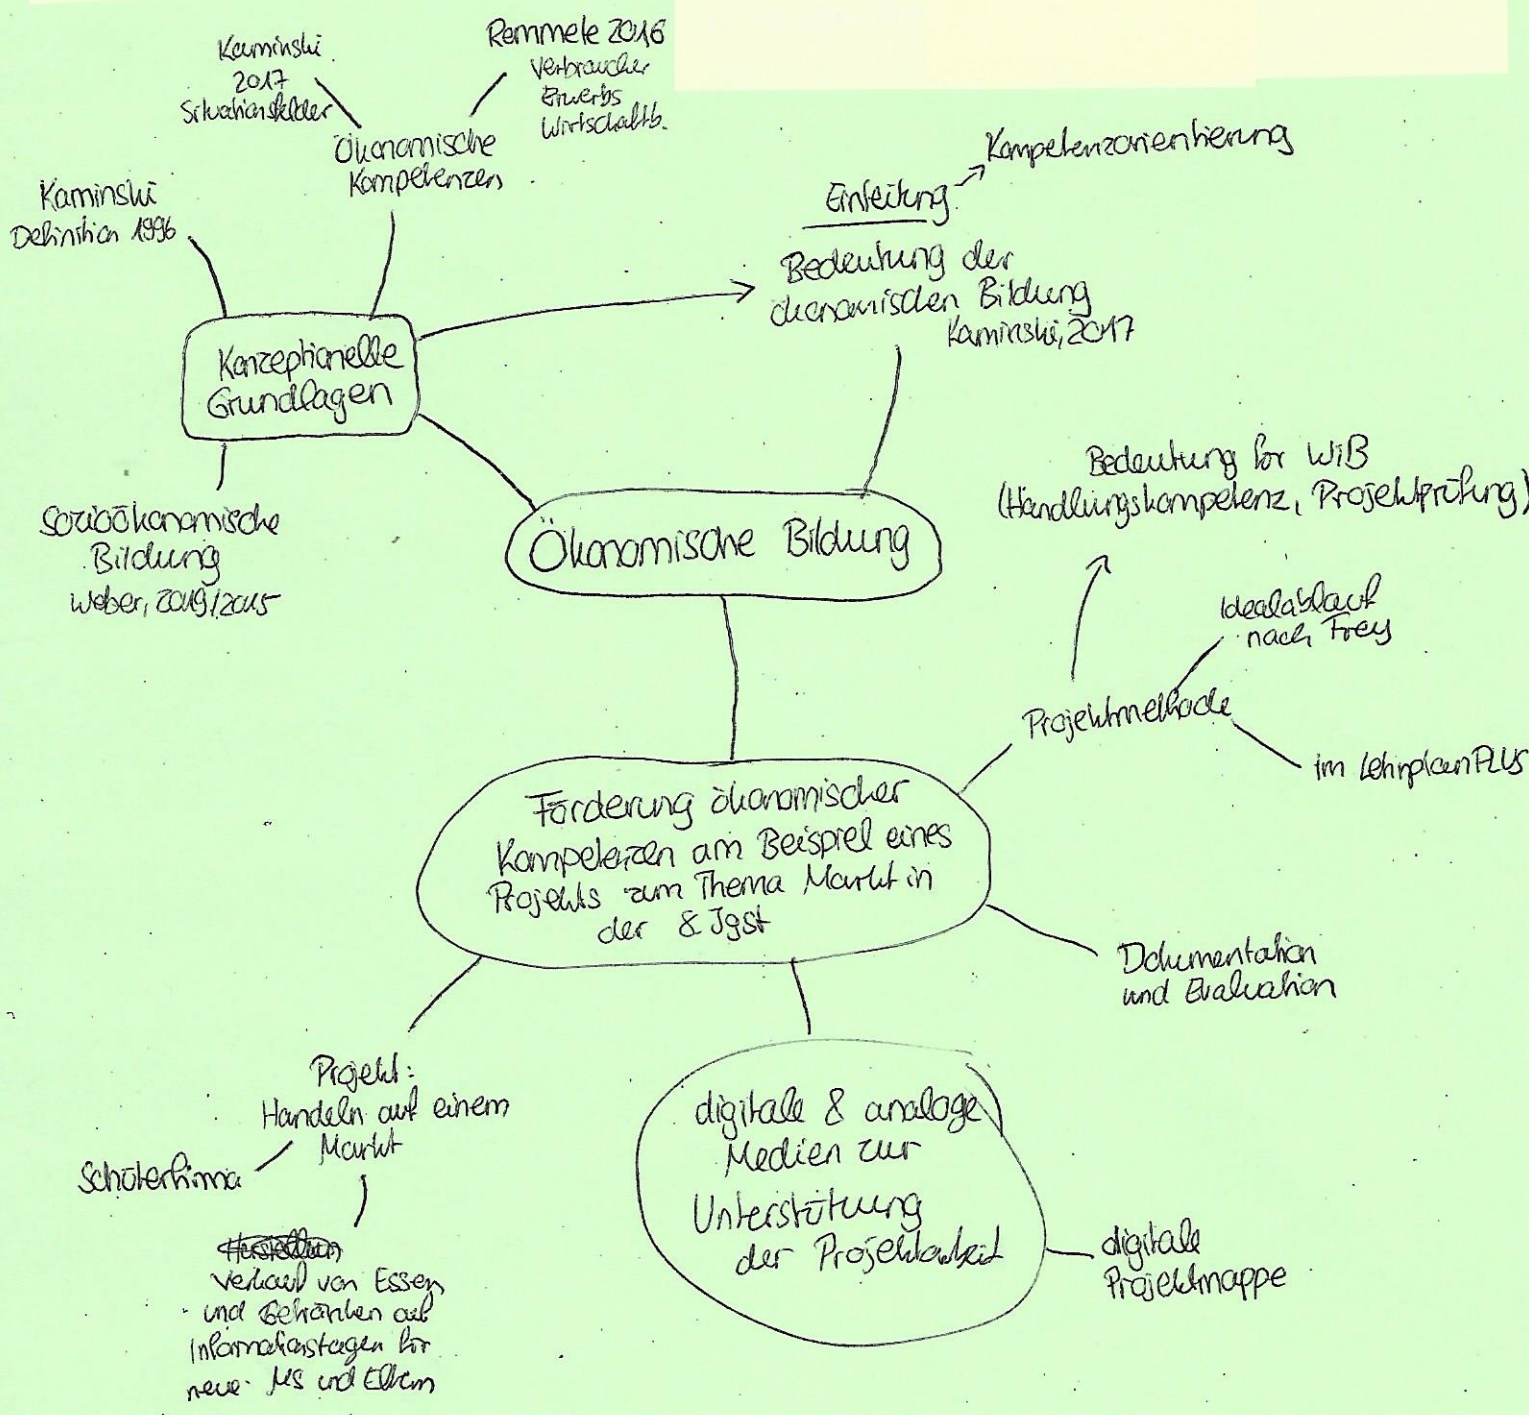 Kaminski
2017
Situationsfelder
Remmele 2016
Verbraucher
Erwerbs
Wirtschaftb.
Ökonomische
Kompetenzen
Kaminski
Definition 1996
Kompetenzorientierung
Einleitung
Bedeutung der
ökonomischen Bildung
Kaminski, 2017
Konzeptionelle
Grundlagen
Sozioökonomische
Bildung
Weber, 2019/2015
Ökonomische Bildung
Bedeutung für WiB
(Handlungskompetenz, Projektprüfung)
Idealablauf
nach Frey
Projektmethode
im LehrplanPLUS
Förderung ökonomischer
Kompetenzen am Beispiel eines
Projekts zum Thema Markt in
der 8 Jgst
Dokumentation
und Evaluation
Projekt:
Handeln auf einem
Markt
Schülerfirma
Verkauf von Essen
und Getränken auf
Informationstagen für
neue MS und Eltern
digitale & analoge
Medien zur
Unterstützung
der Projektarbeit
digitale
Projektmappe